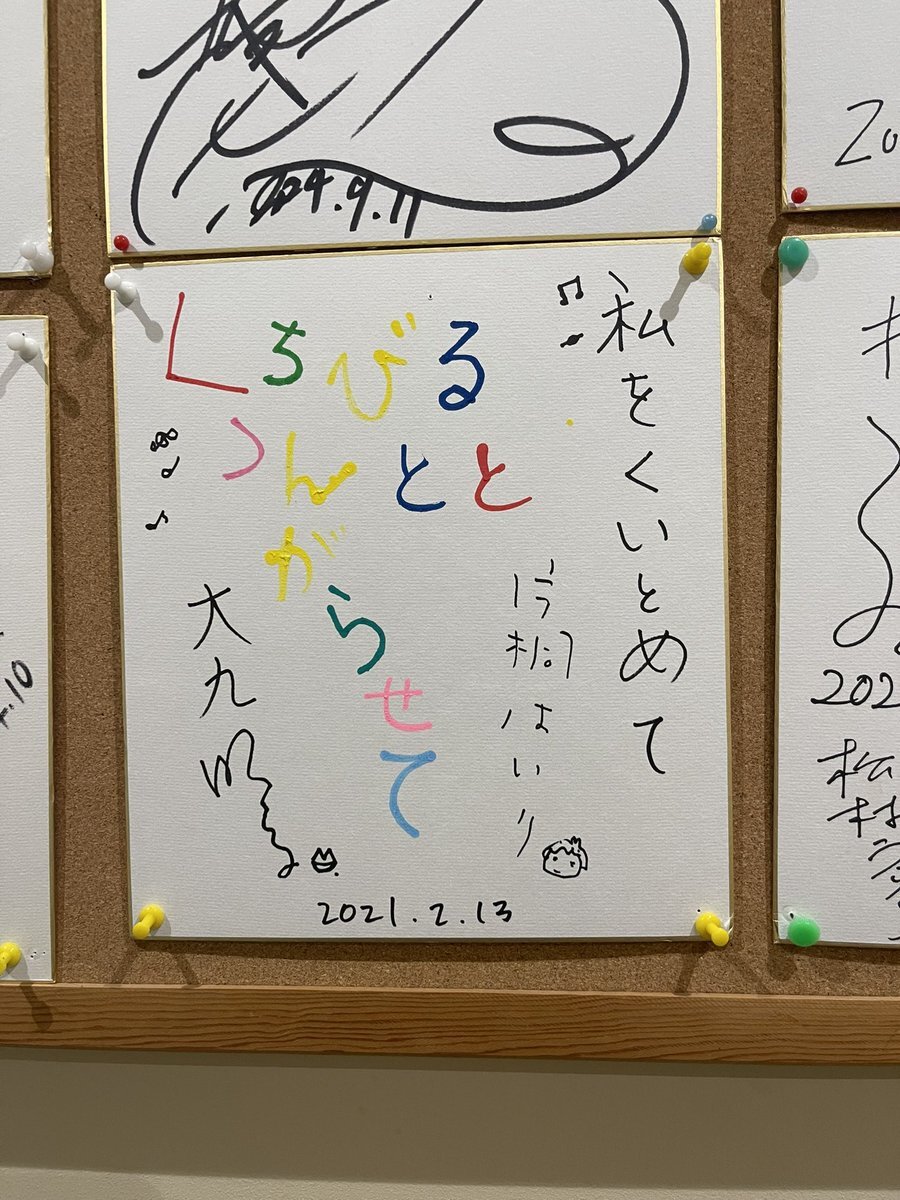 2024.9.11
私をくいとめて
くちびる
つんとと
がらせて
片桐はいり
大九
2021.2.13
.10
202
松村